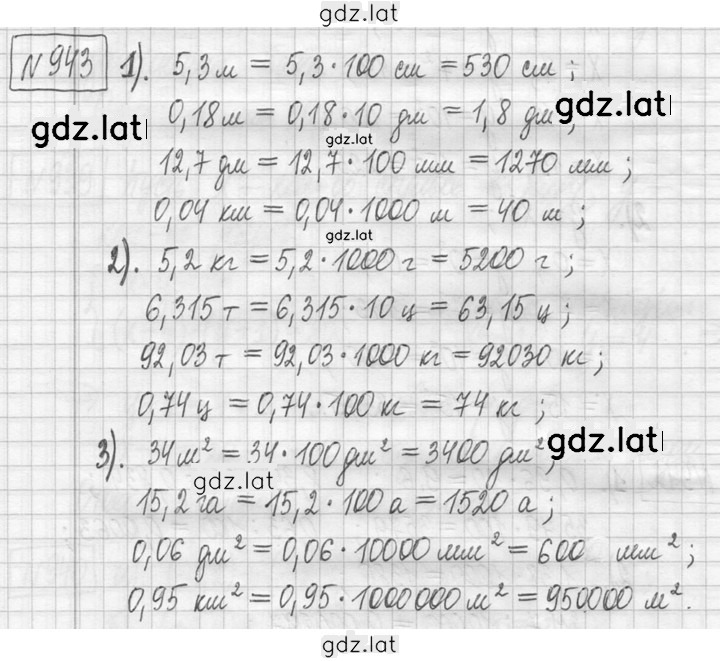 gdz.lat
№943 1). 5,3 м = 5,3·100 см = 530 см ;
gdz.lat 0,18 м = 0,18·10 дм = 1,8 дм ; gdz.lat
gdz.lat
12,7 дм = 12,7·100 мм = 1270 мм ;
0,04 км = 0,04·1000 м = 40 м ;
gdz.lat
2). 5,2 кг = 5,2·1000 г = 5200 г ;
6,315 т = 6,315·10 ц = 63,15 ц ;
92,03 т = 92,03·1000 кг = 92030 кг ;
0,74 ц = 0,74·100 кг = 74 кг ;
3). 34 м² = 34·100 дм² = 3400 дм² ; gdz.lat
gdz.lat
15,2 га = 15,2·100 а = 1520 а ;
0,06 дм² = 0,06·10000 мм² = 600 мм² ;
0,95 км² = 0,95·1000000 м² = 950000 м².
gdz.lat